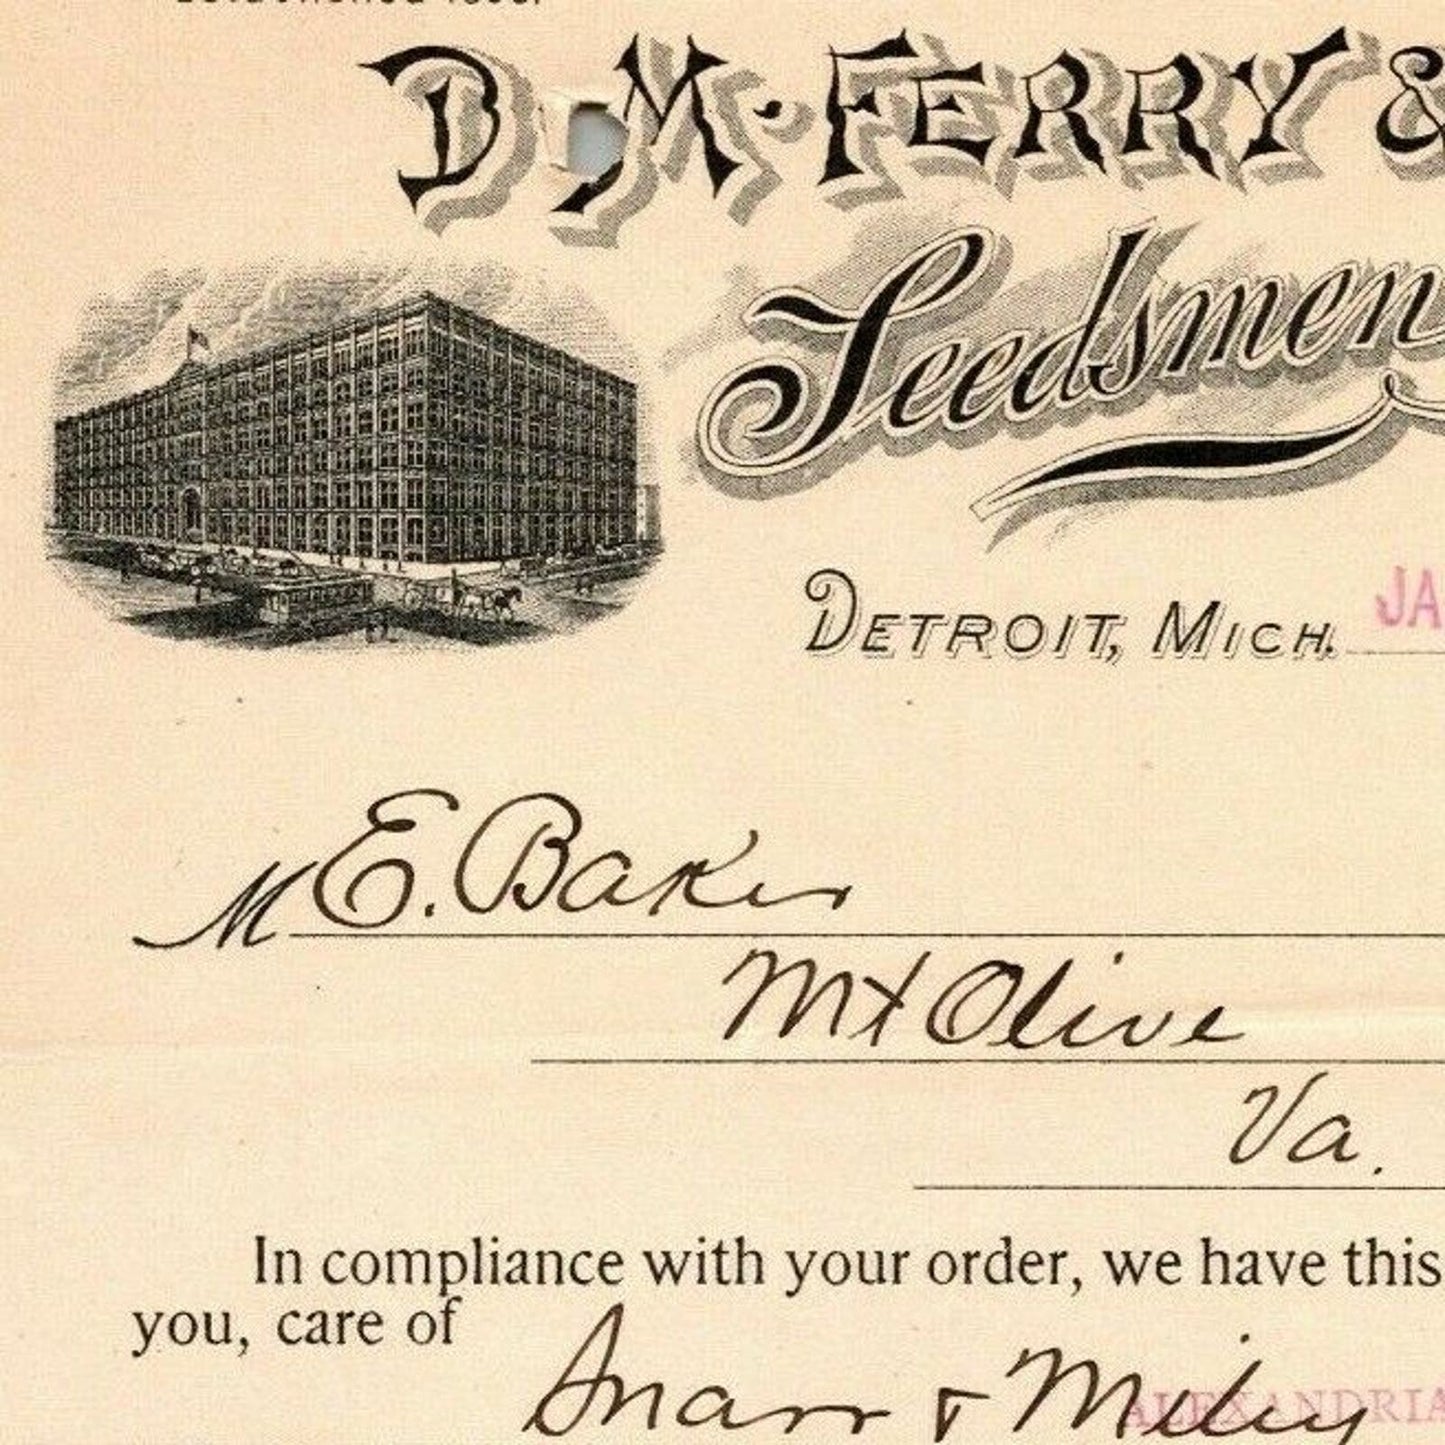 D. M. FERRY &
Seedsmen
DETROIT, MICH. JA
M E. Baker
Mt Olive
Va.
In compliance with your order, we have this
you, care of
Snarr & Miley ALEXANDRIA